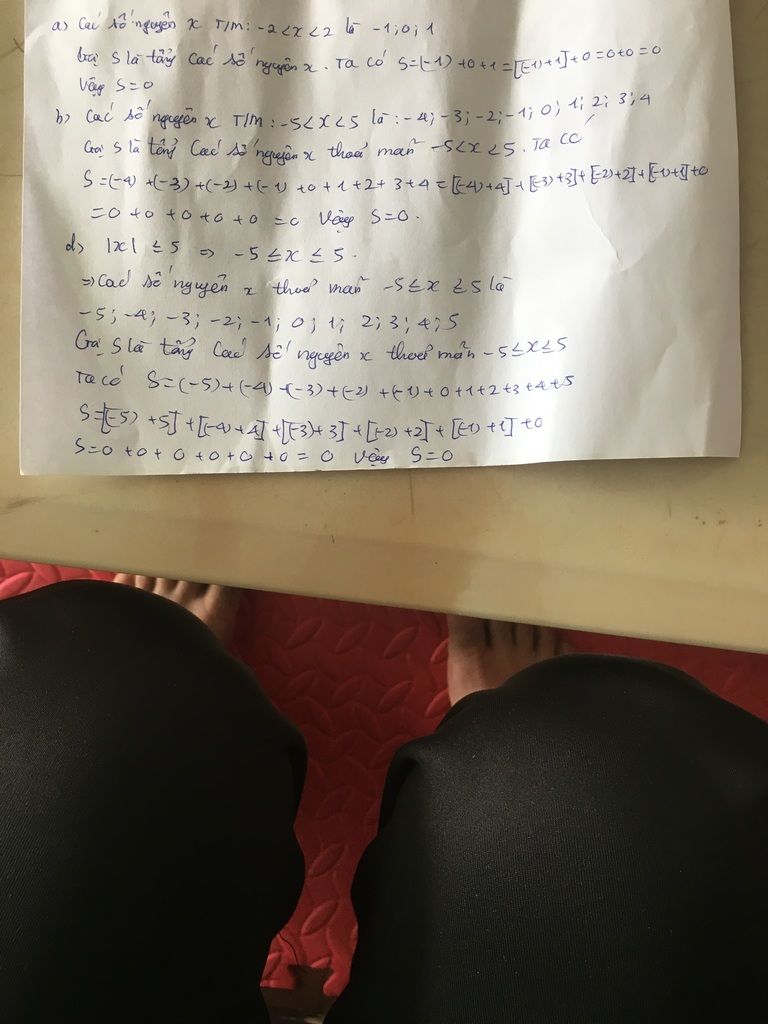 a) Các số nguyên x T/M: -2 < x < 2 là -1; 0; 1
Gọi S là tổng các số nguyên x. Ta có S = (-1) + 0 + 1 = [(-1) + 1] + 0 = 0 + 0 = 0
Vậy S = 0
b) Các số nguyên x T/M: -5 < x < 5 là: -4; -3; -2; -1; 0; 1; 2; 3; 4
Gọi S là tổng các số nguyên x thoả mãn -5 < x < 5. Ta có
S = (-4) + (-3) + (-2) + (-1) + 0 + 1 + 2 + 3 + 4 = [(-4) + 4] + [(-3) + 3] + [(-2) + 2] + [(-1) + 1] + 0
= 0 + 0 + 0 + 0 + 0 = 0 Vậy S = 0.
d) |x| ≤ 5 => -5 ≤ x ≤ 5.
=> Các số nguyên x thoả mãn -5 ≤ x ≥ 5 là
-5; -4; -3; -2; -1; 0; 1; 2; 3; 4; 5
Gọi S là tổng các số nguyên x thoả mãn -5 ≤ x ≤ 5
Ta có S = (-5) + (-4) + (-3) + (-2) + (-1) + 0 + 1 + 2 + 3 + 4 + 5
S = [(-5) + 5] + [(-4) + 4] + [(-3) + 3] + [(-2) + 2] + [(-1) + 1] + 0
S = 0 + 0 + 0 + 0 + 0 + 0 = 0 Vậy S = 0